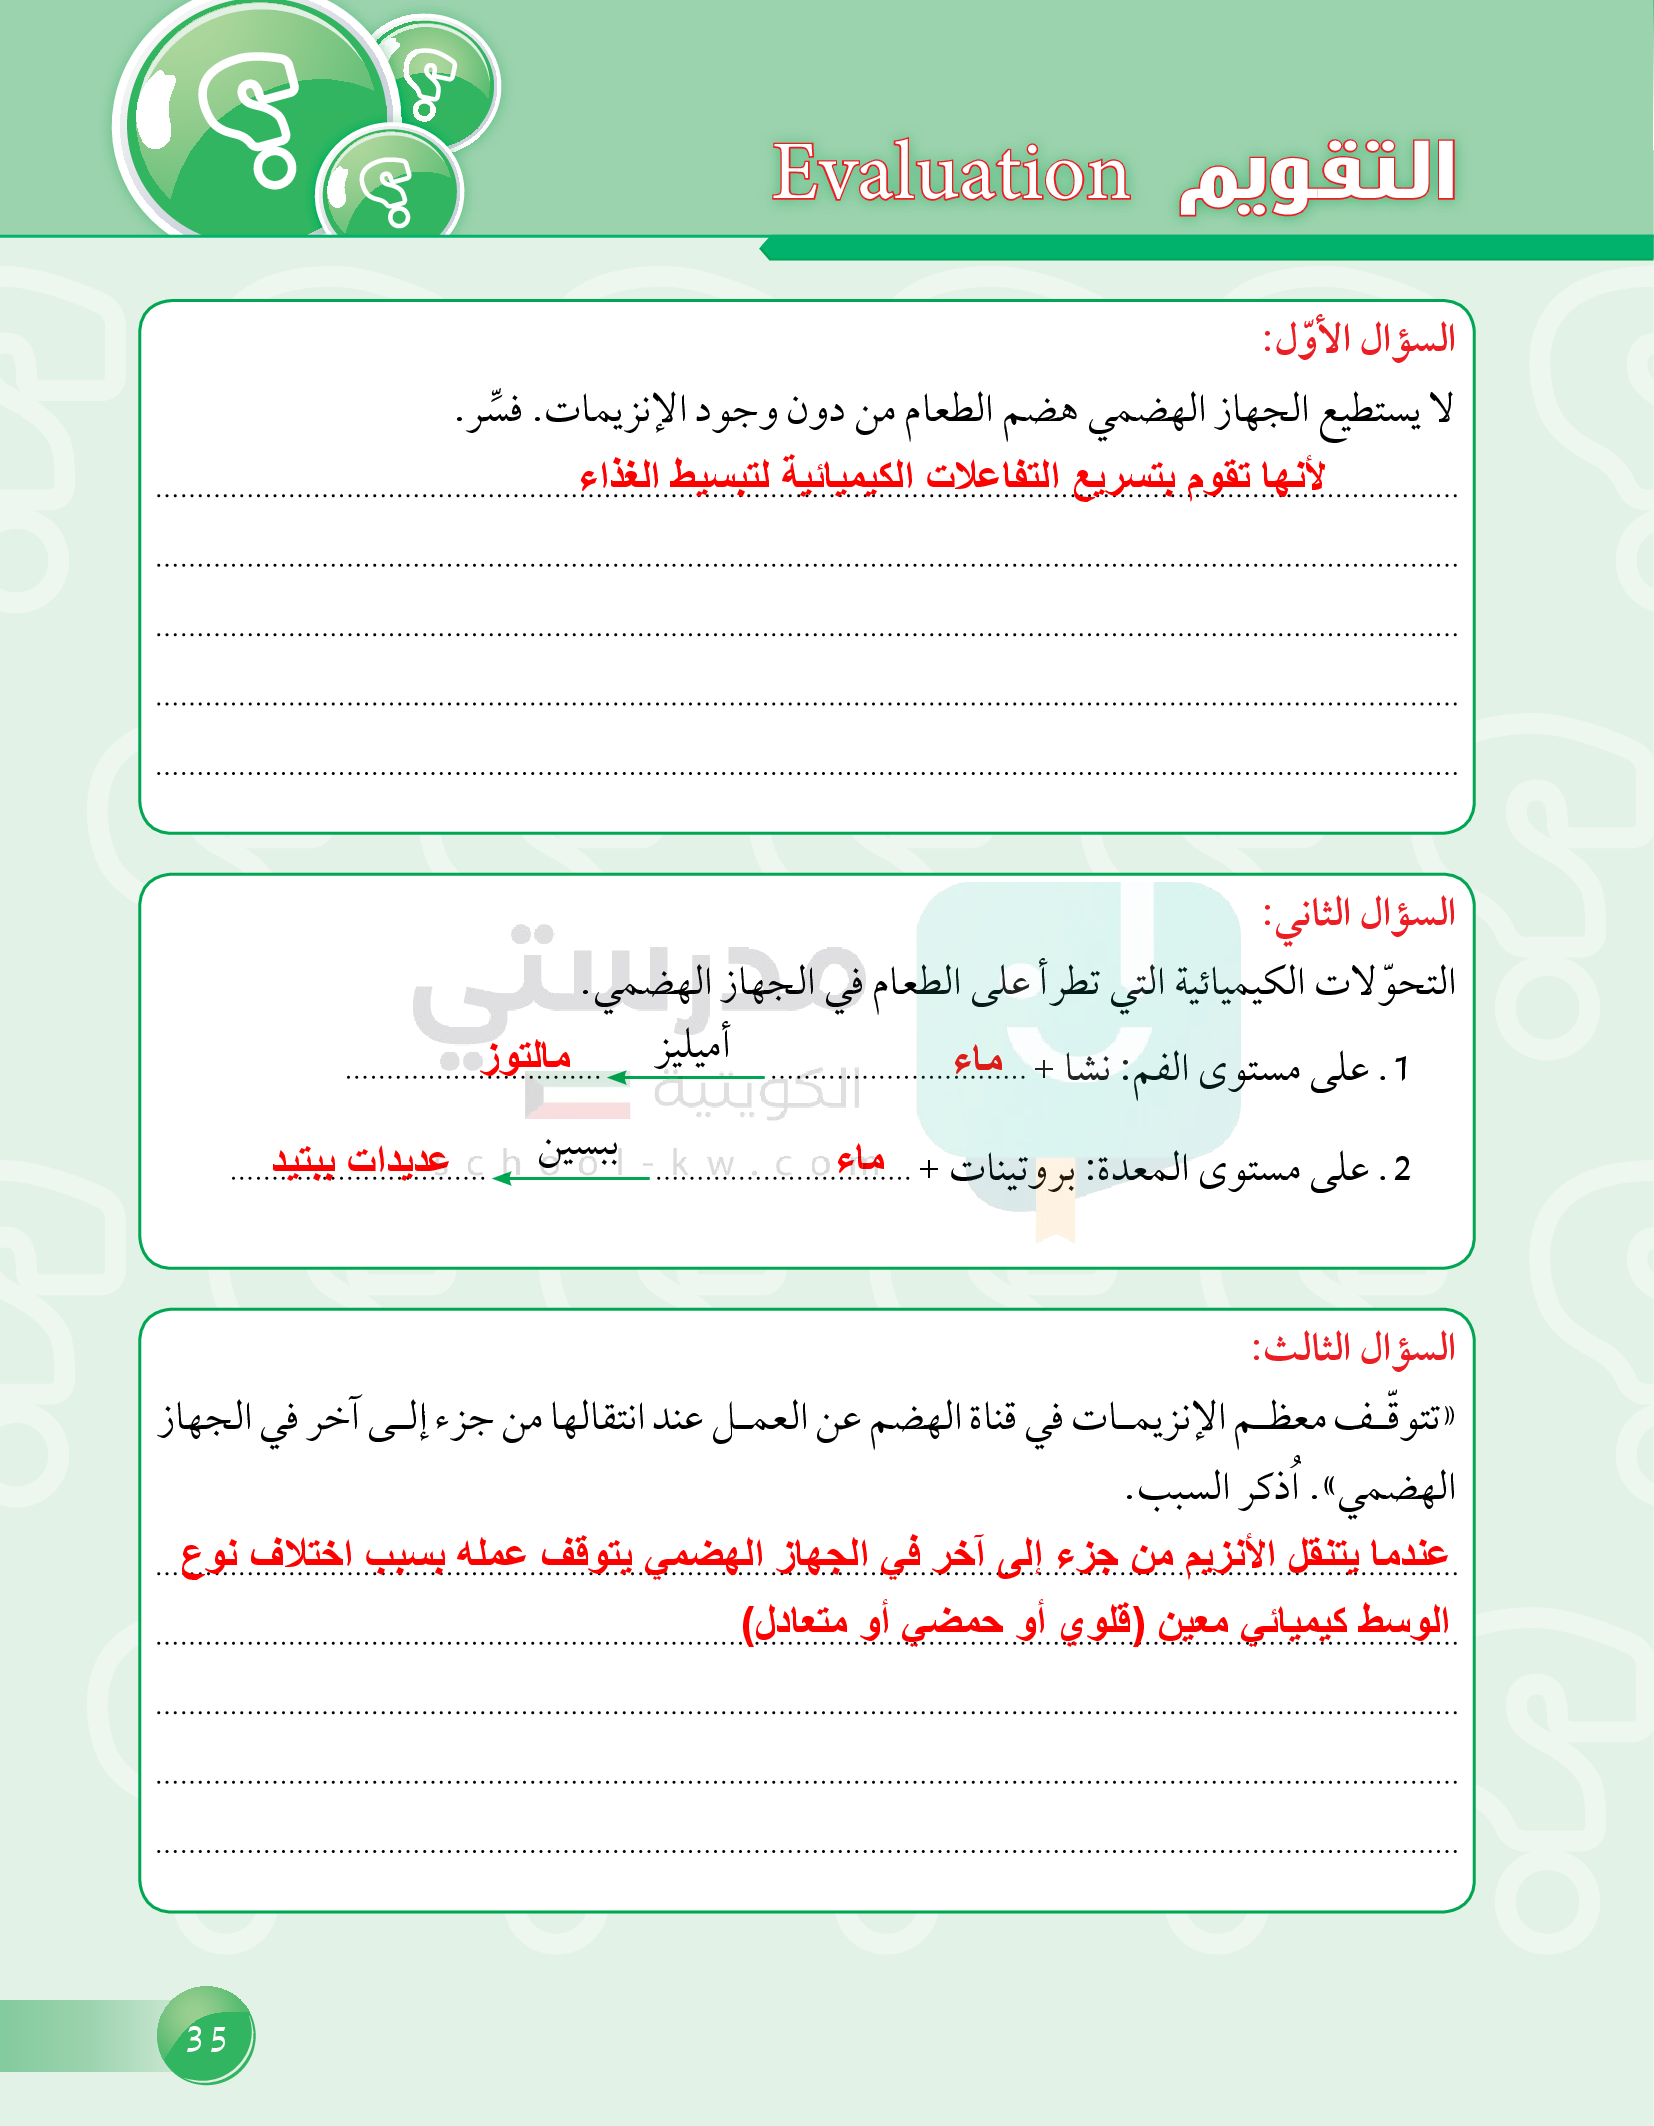 التقويم Evaluation
السؤال الأوّل:
لا يستطيع الجهاز الهضمي هضم الطعام من دون وجود الإنزيمات. فسِّر.
لأنها تقوم بتسريع التفاعلات الكيميائية لتبسيط الغذاء
السؤال الثاني:
التحوّلات الكيميائية التي تطرأ على الطعام في الجهاز الهضمي.
1. على مستوى الفم: نشا + ماء أميليز مالتوز
2. على مستوى المعدة: بروتينات + ماء ببسين عديدات ببتيد
مدرستي
الكويتية
school-kw.com
السؤال الثالث:
«تتوقّف معظم الإنزيمات في قناة الهضم عن العمل عند انتقالها من جزء إلى آخر في الجهاز
الهضمي». اُذكر السبب.
عندما يتنقل الأنزيم من جزء إلى آخر في الجهاز الهضمي يتوقف عمله بسبب اختلاف نوع
الوسط كيميائي معين (قلوي أو حمضي أو متعادل)
35